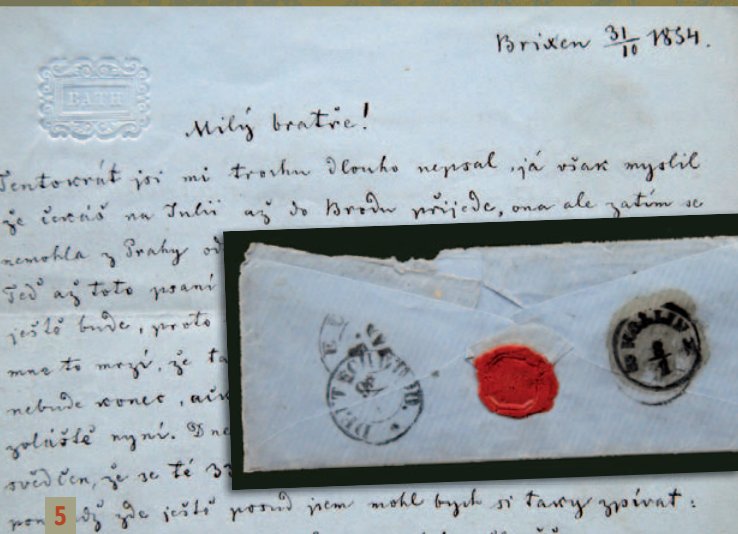 Brixen 31/10 1854.
BATH
Milý bratře!
Tentokrát jsi mi trochu dlouho nepsal, já však myslil
že čekáš na Julii až do Brodu přijede, ona ale zatím se
nemohla z Prahy od
Teď až toto psaní
ještě bude, proto
mne to mrzí, že ta
nebude konec, ač
zvláště nyní. Dne
svědčen, že se té 33
zde ještě posud jsem mohl bych si taky zpívat:
DEUTSCHBR.
KOLLIN
5